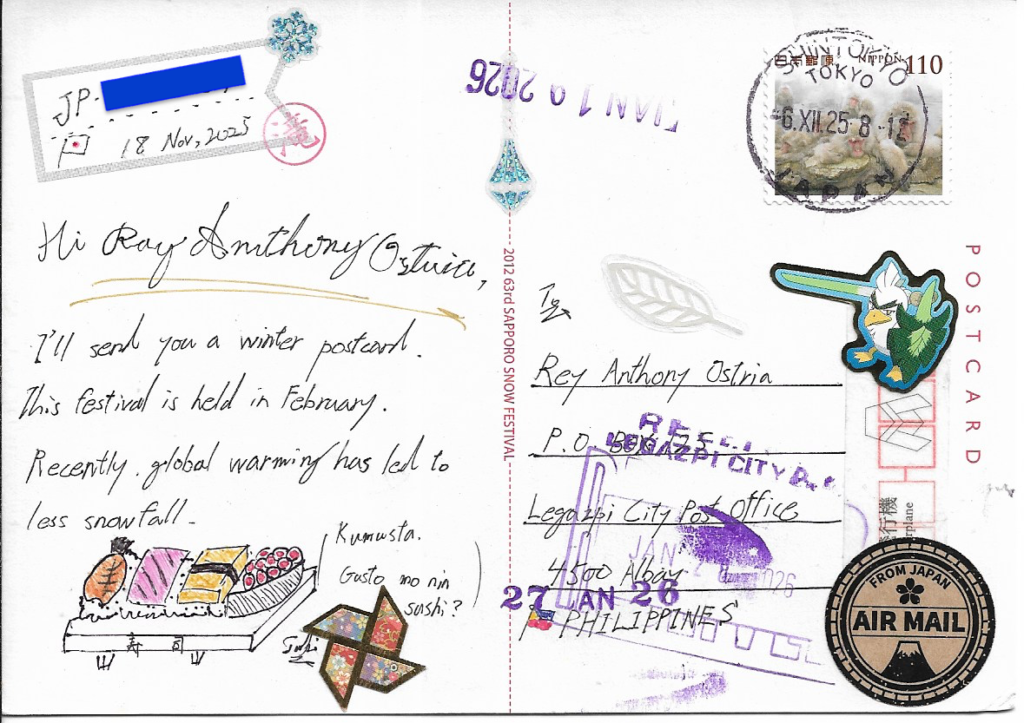 JP-
18 Nov, 2025
滝
Hi Ray Anthony Ostria,
I'll send you a winter postcard.
This festival is held in February.
Recently, global warming has led to
less snowfall.
Kumusta.
Gusto mo nin
sushi?
寿司
2012 63rd SAPPORO SNOW FESTIVAL
JAN 19 2026
SHINTOKYO
TOKYO
-6.XII.25 8-12
JAPAN
日本郵便 NIPPON 110
POSTCARD
To
Rey Anthony Ostria
P.O. BOX 175
LEGAZPI CITY
Legazpi City Post Office
JAN 2 2026
4500 Albay
27 JAN 26
PHILIPPINES
行機
rplane
FROM JAPAN
AIR MAIL